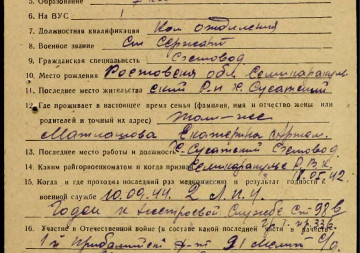 5. Образование
6. На ВУС
7. Должностная квалификация Ком отделения
8. Военное звание Ст Сержант
9. Гражданская специальность Счетовод
10. Место рождения Ростовская обл Семикаракум.
11. Последнее место жительства ский Р-н х. Сусатский
12. Где проживает в настоящее время семья (фамилия, имя и отчество жены или
родителей и точный их адрес) Там-же
Екатерина
13. Последнее место работы и должность х. Сусатский Счетовод
14. Каким райгорвоенкоматом и когда призван Семикаракум Р.В.К.
18.05.42
15. Когда и где проходил последний раз медкомиссию и результат годности к
военной службе 10.09.44 2
Годен к нестроевой службе ст 98
16. Участие в Отечественной войне (в составе какой последней части и в качестве
1й Прибалтий ф-т 91